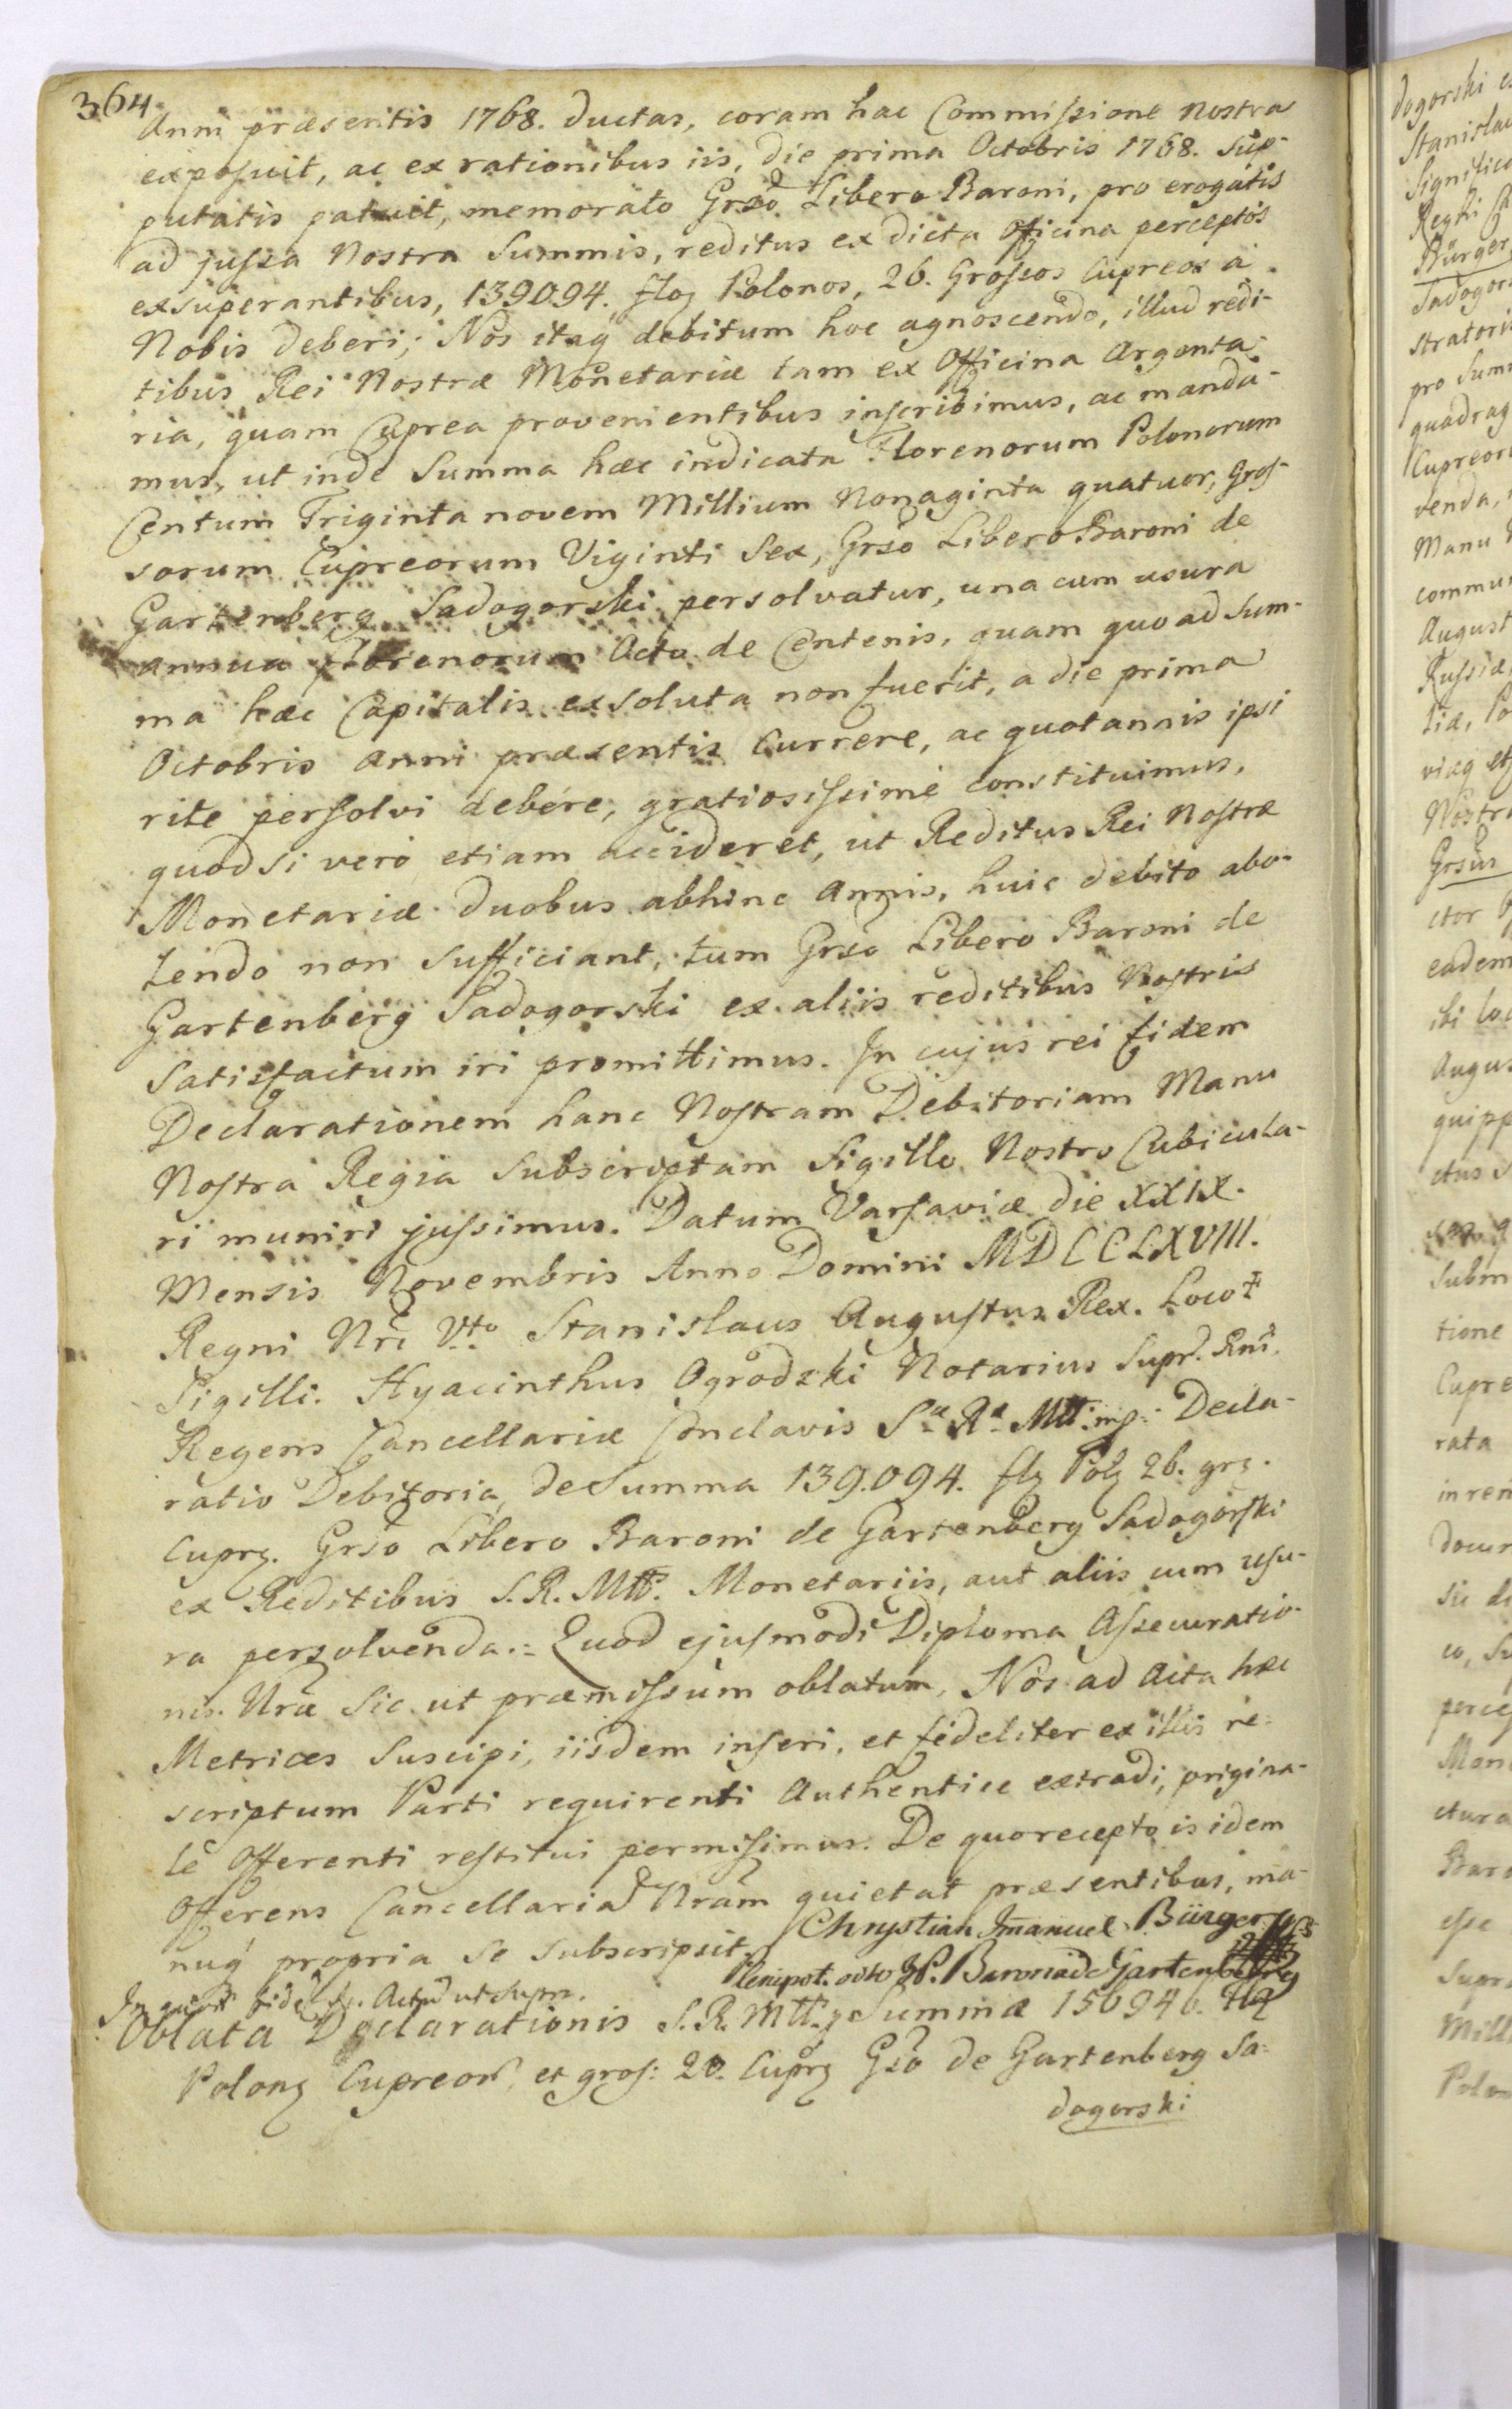 364
Anni præsentis 1768. ductas, coram hac Commissione Nostra
exposuit, ac ex rationibus iis, die prima Octobris 1768. sup-
putatis patuit, memorato Grso Libero Baroni, pro erogatis
ad jussa Nostra Summis, reditus ex dicta Officina perceptos
exsuperantibus, 139094. floz Polonos, 26. Grossos Cupreos a
Nobis deberi; Nos itaq debitum hoc agnoscendo, illud redi-
tibus Rei Nostræ Monetariæ tam ex Officina Argenta-
ria, quam Cuprea provenientibus inscribimus, ac manda-
mus, ut inde Summa hæc indicata Florenorum Polonorum
Centum Triginta novem Millium Nonaginta quatuor, Gros-
sorum Cupreorum Viginti Sex, Grso Libero Baroni de
Gartenberg Sadogorski persolvatur, una cum usura
annua Florenorum Octo de Centenis, quam quoad Sum-
ma hæc Capitalis exsoluta non fuerit, a die prima
Octobris Anni præsentis Currere, ac quotannis ipsi
rite persolvi debere, gratiosissime constituimus,
quodsi vero etiam accideret, ut Reditus Rei Nostræ
Monetariæ duobus abhinc Annis, huic debito abo-
lendo non sufficiant, tum Grso Libero Baroni de
Gartenberg Sadogorski ex aliis reditibus Nostris
Satisfactum iri promittimus. In cujus rei fidem
Declarationem hanc Nostram Debitoriam Manu
Nostra Regia Subscriptam Sigillo Nostro Cubicula-
ri muniri jussimus. Datum Varsaviæ die XXIX.
Mensis Novembris Anno Domini MDCCLXVIII.
Regni Nri Vto Stanislaus Augustus Rex. Loco
Sigilli. Hyacinthus Ogrodzki Notarius Supr. Rni.
Regens Cancellariæ Conclavis Sæ Ræ Mtt. mp: Decla-
ratio Debitoria, de Summa 139.094. flz Polz 26. grz.
Cuprz. Grso Libero Baroni de Gartenberg Sadogorski
ex Reditibus S. R. Mtt. Monetariis, aut aliis cum usu-
ra persolvenda.= Quod ejusmodi Diploma Assecuratio-
nis Nræ Sic ut præmissum oblatum, Nos ad Acta hæc
Metrices Suscipi, iisdem inseri, et fideliter ex illis re-
scriptum Parti requirenti Authentice extradi, origina-
le Offerenti restitui permisimus. De quo recepto is idem
Offerens Cancellaria Nram quietat præsentibus, ma-
nuq propria se subscripsit. Chrystian Imanuel Bürger
Plenipot. odto JP. Barona de Gartenberg
Actu ut Supra.
Oblata Declarationis S. R. Mtt. Summæ 150946. flz
Polonz Cupreor, et gros: 20. Cuprz Gso de Gartenberg Sa-
dogorski
dogorski
Stanislau
Significa
Bürger
Sadogor
stratori
pro Sum
quadrag
Cupreor
venda,
Manu
commu
August
Russiæ
Nostr
Grsus
ctor
eadem
ibi loc
Augus
quipp
ctus
Subm
tione
Cupre
rata
in rem
docu
sic
perce
ctura
Baro
esse
Supra
Mill
Polon